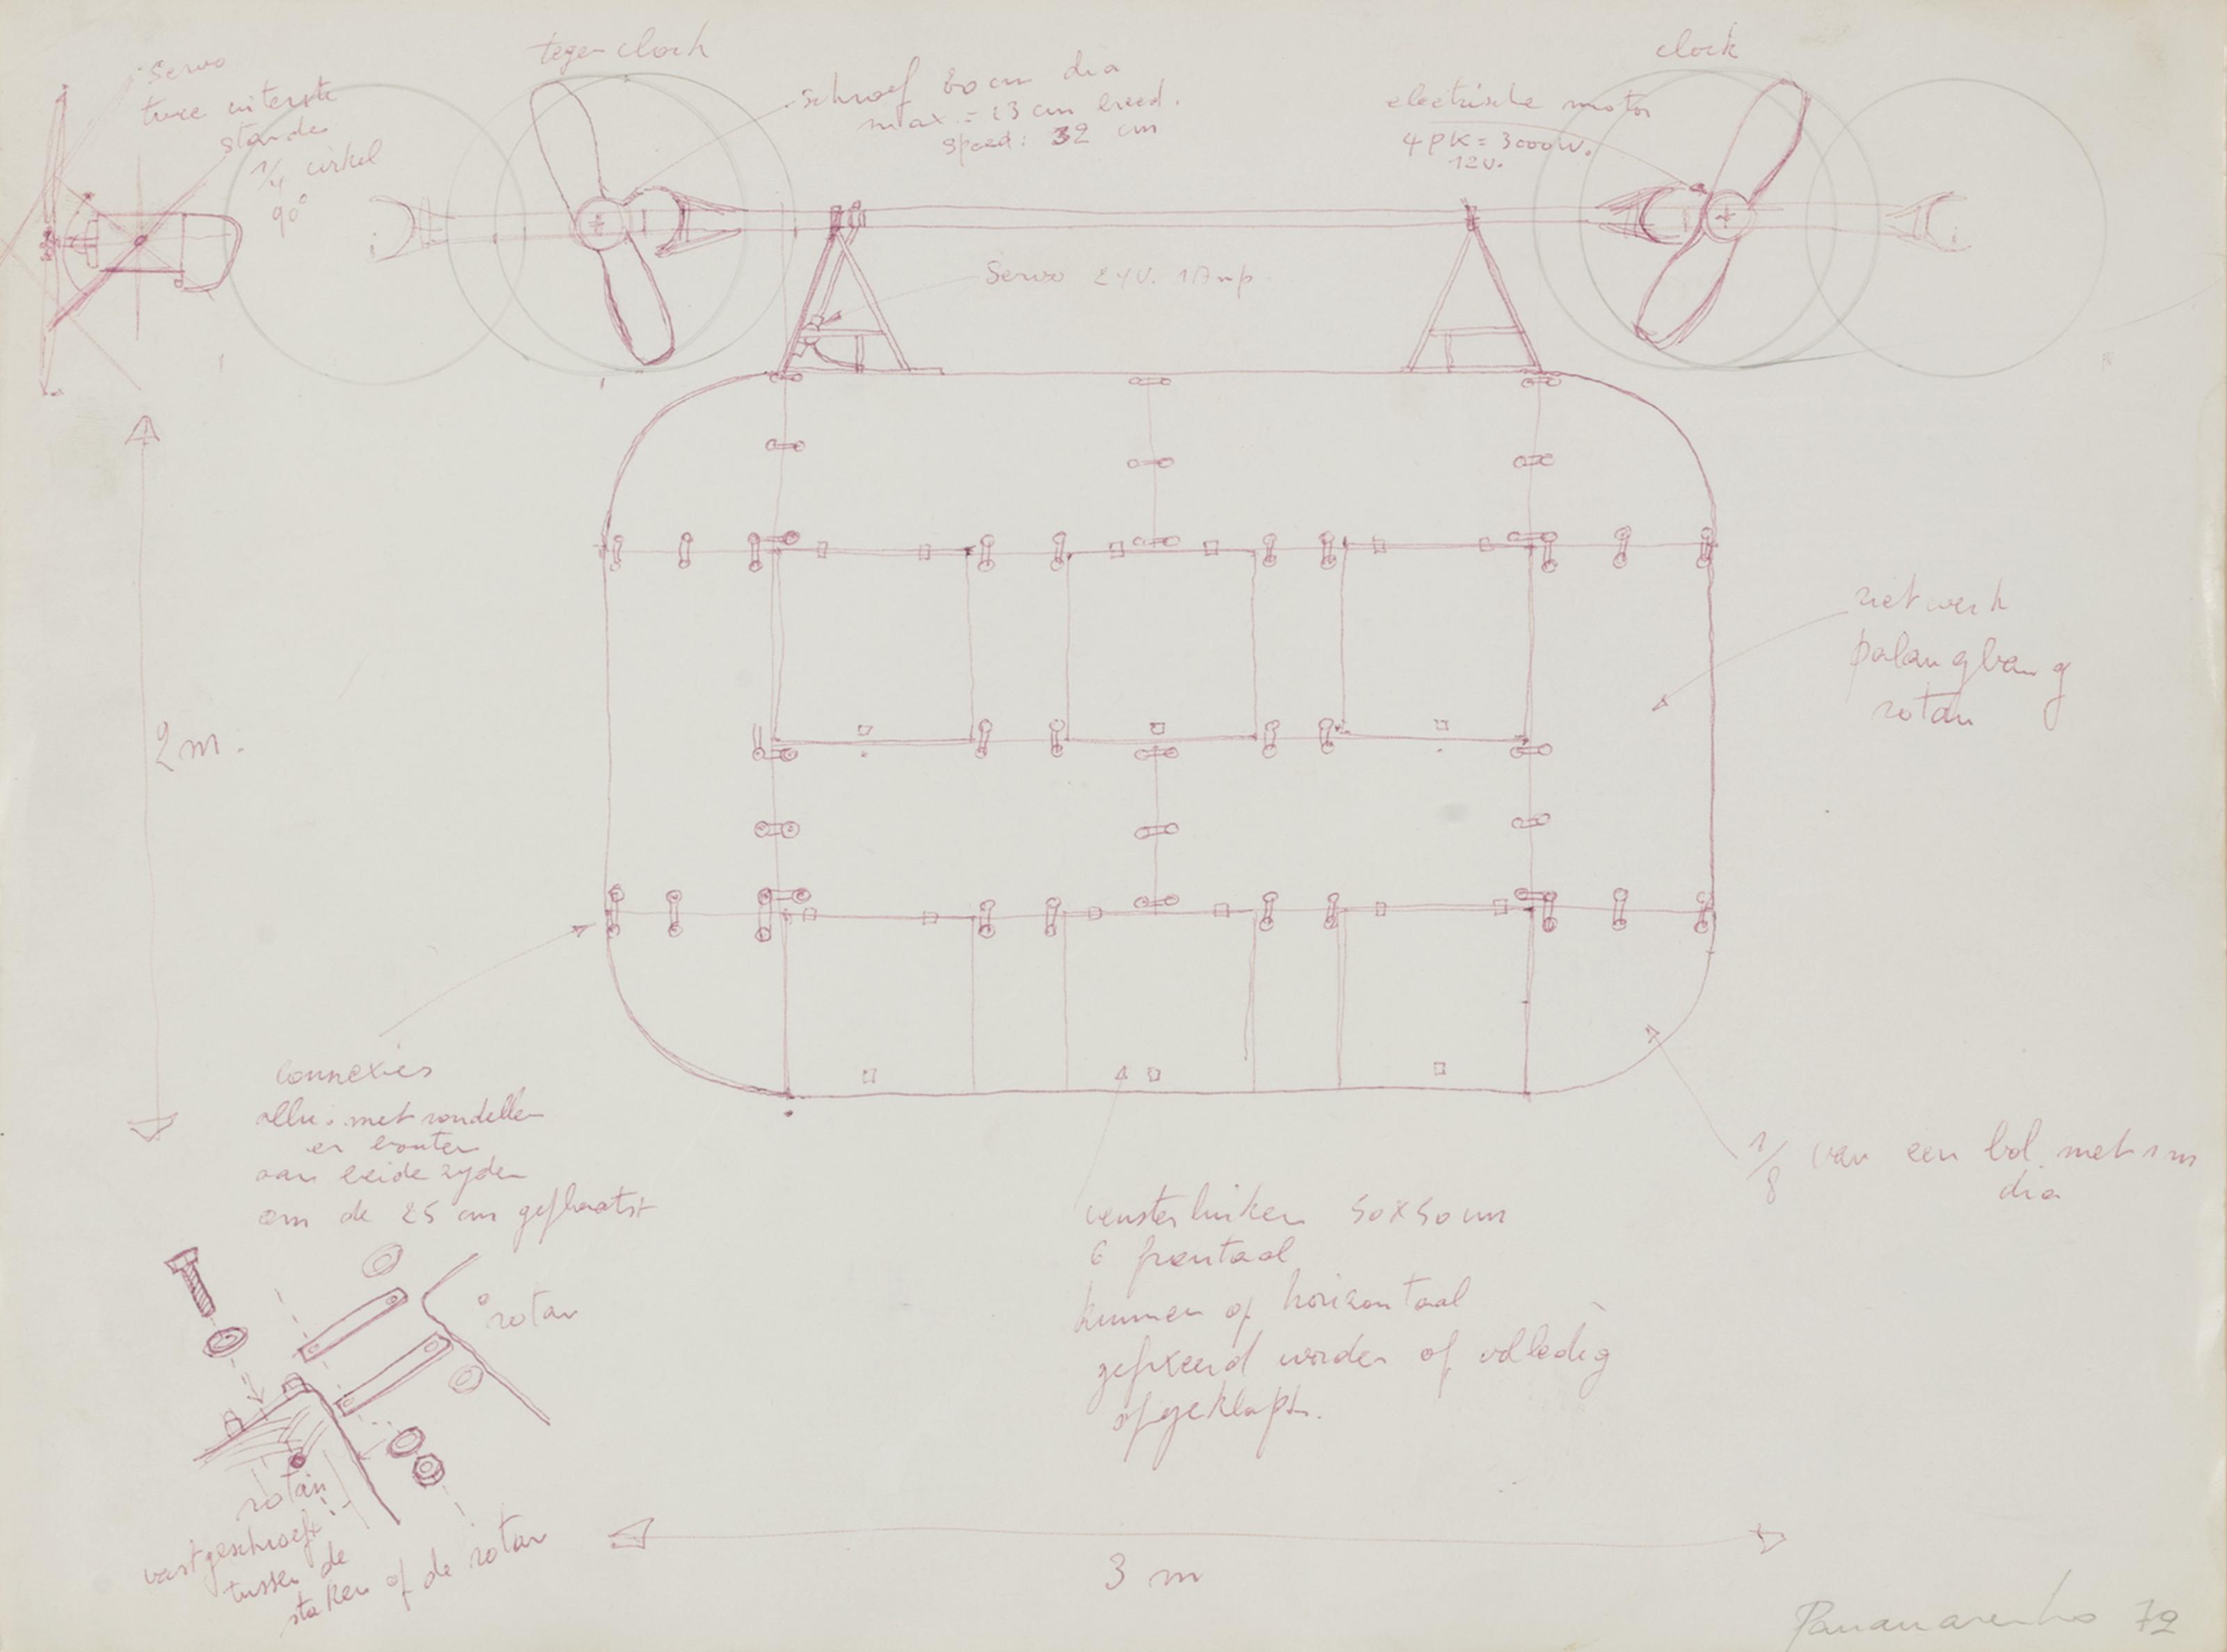 servo
twee uiterste
standen
1/4 cirkel
90°
tegenclock
schroef 80 cm dia
max. = 13 cm breed.
speed: 32 cm
clock
electrische motor
4 PK = 3000 W.
12 V.
Servo 24 V. 1 Amp.
2 m.
rietwerk
palangbang
rotan
connexies
allu. met rondellen
en bouten
aan beide zyden
om de 25 cm geplaatst
rotan
rotan
vastgeschroeft
tussen de
staken of de rotan
vensterluiken 50 x 50 cm
6 frontaal
kunnen of horizontaal
gefixeerd worden of volledig
afgeklapt.
1/8 van een bol met 1 m
dia
3 m
Panamarenko 72